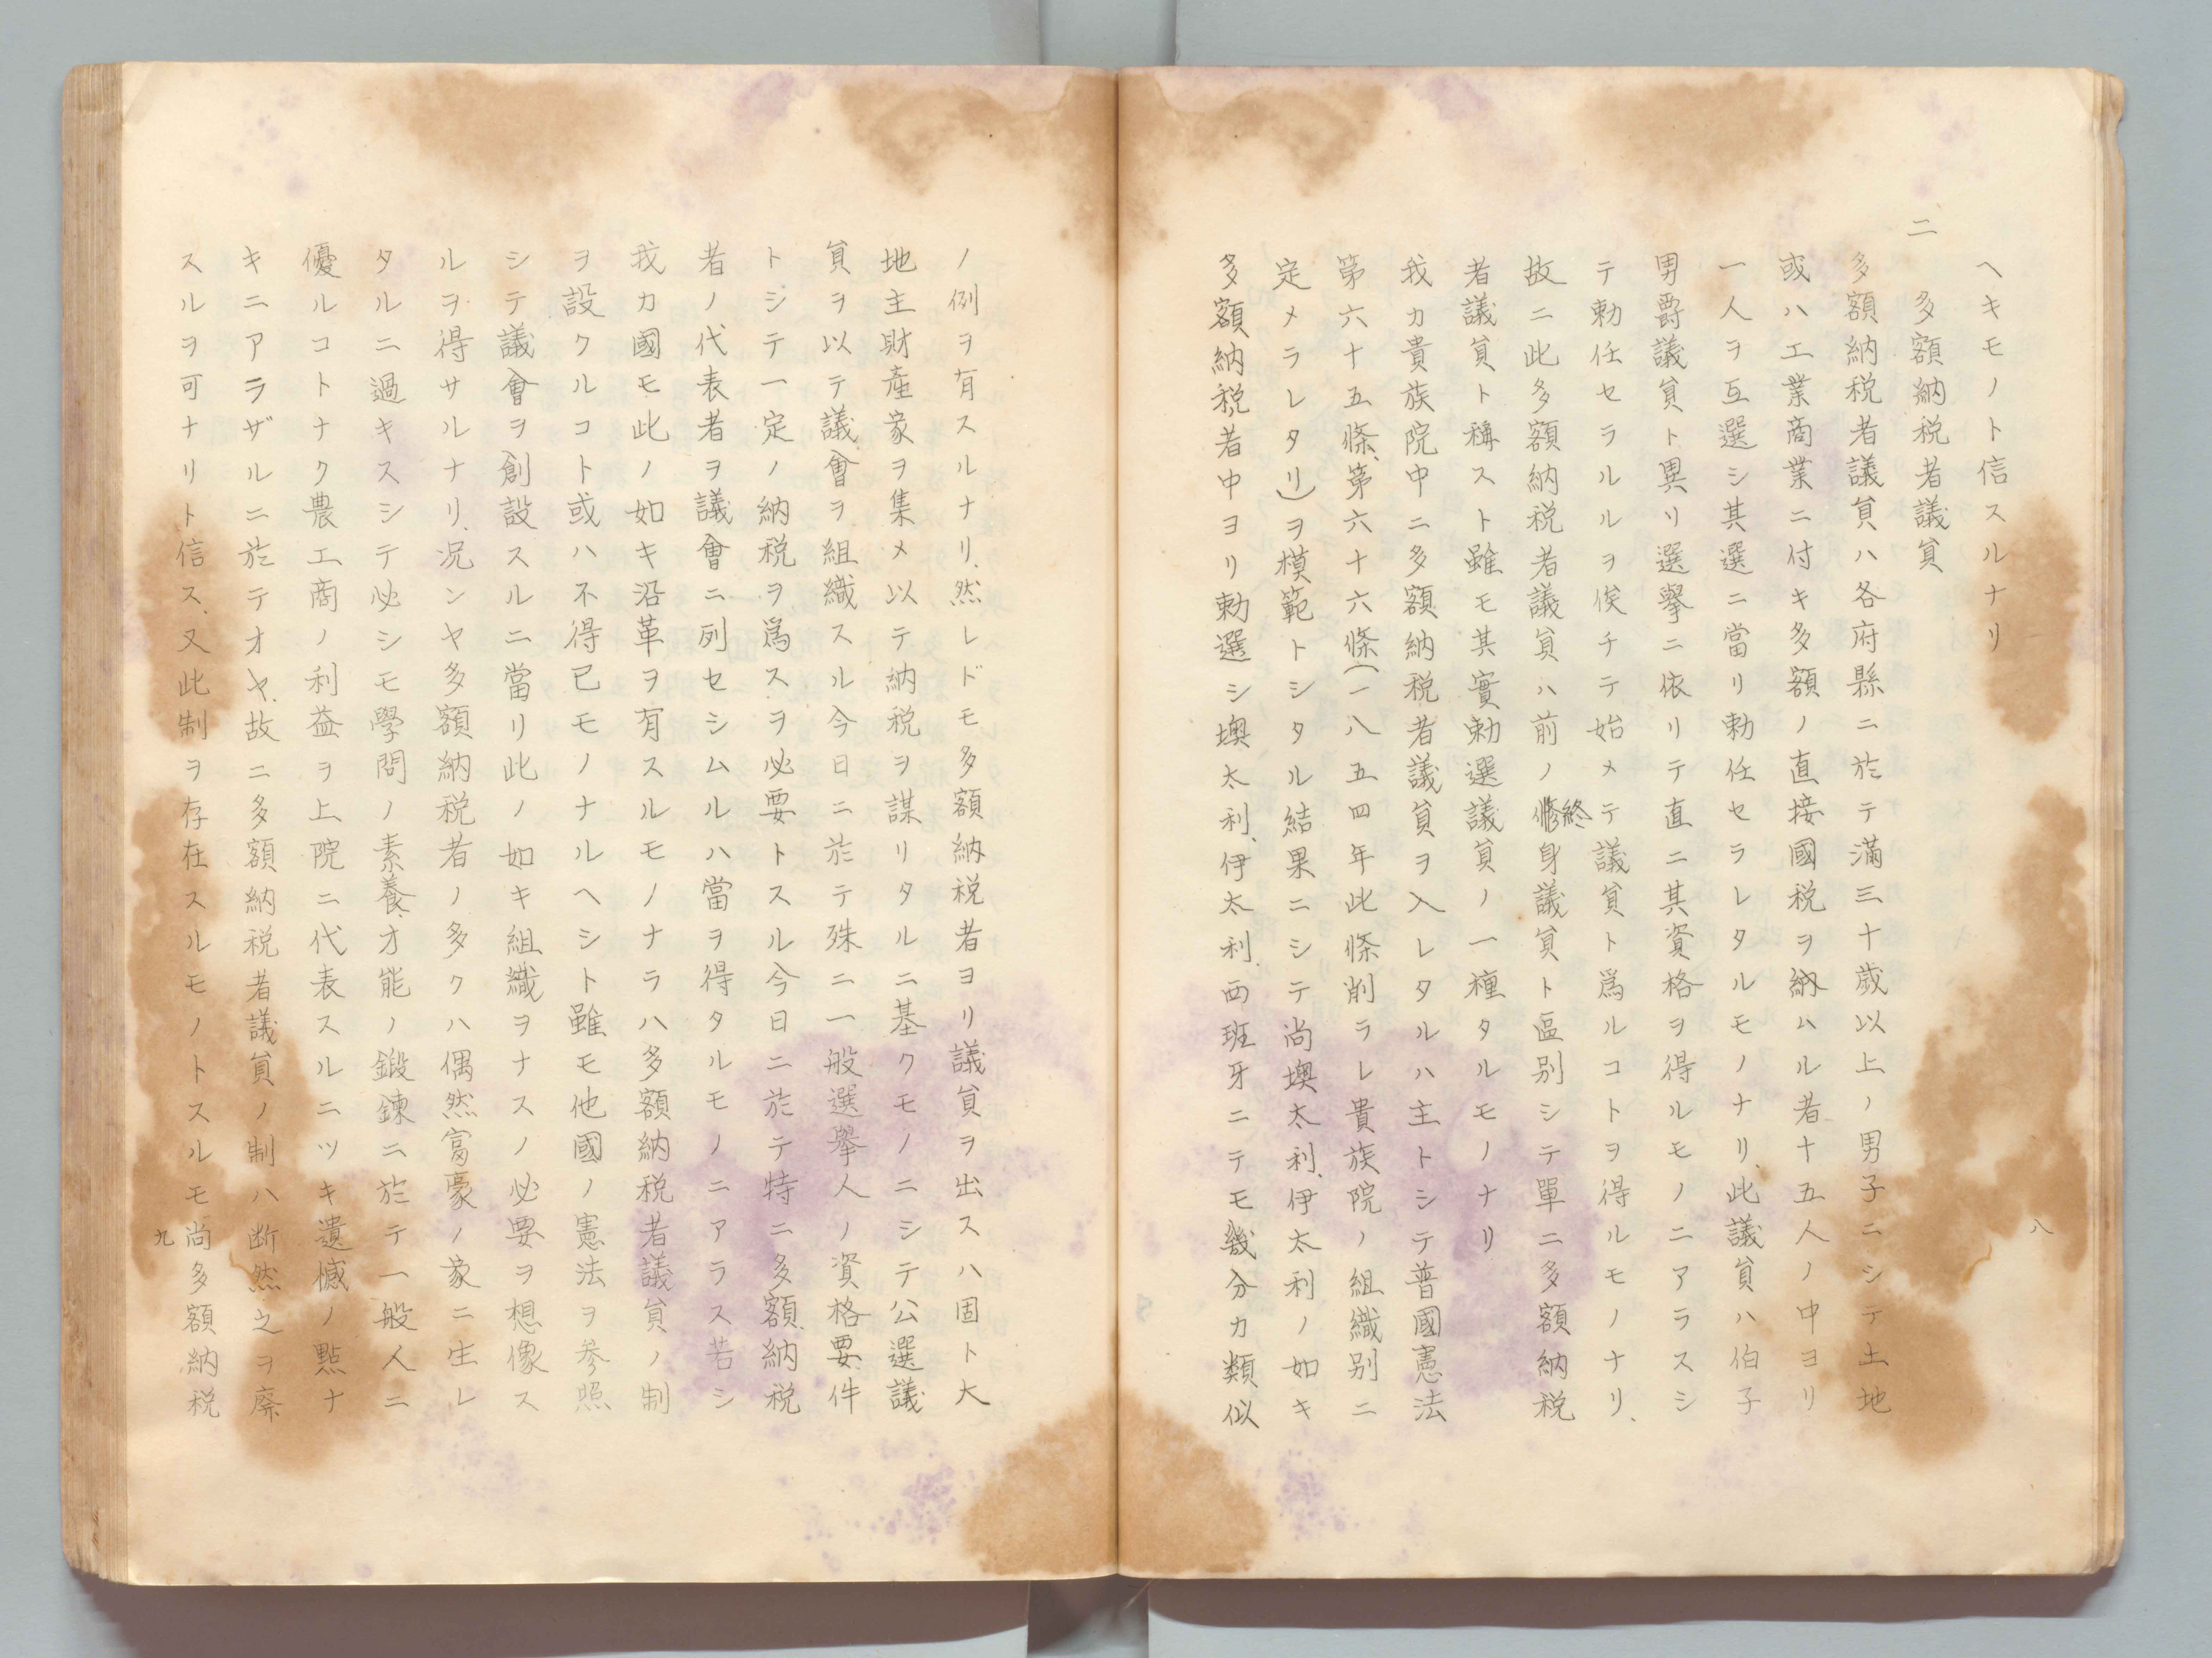 ヘキモノト信スルナリ
二　多額納税者議員
多額納税者議員ハ各府縣ニ於テ滿三十歳以上ノ男子ニシテ土地
或ハ工業商業ニ付キ多額ノ直接國税ヲ納ムル者十五人ノ中ヨリ
一人ヲ互選シ其選ニ當リ勅任セラレタルモノナリ、此議員ハ伯子
男爵議員ト異リ選擧ニ依リテ直ニ其資格ヲ得ルモノニアラスシ
テ勅任セラルルヲ俟チテ始メテ議員ト爲ルコトヲ得ルモノナリ、
故ニ此多額納税者議員ハ前ノ終身議員ト區别シテ單ニ多額納税
者議員ト稱スト雖モ其實勅選議員ノ一種タルモノナリ
我カ貴族院中ニ多額納税者議員ヲ入レタルハ主トシテ普國憲法
第六十五條、第六十六條(一八五四年此條削ラレ貴族院ノ組織别ニ
定メラレタリ)ヲ模範トシタル結果ニシテ尚墺太利、伊太利ノ如キ
多額納税者中ヨリ勅選シ墺太利、伊太利、西班牙ニテモ幾分カ類似
八
ノ例ヲ有スルナリ、然レドモ多額納税者ヨリ議員ヲ出スハ固ト大
地主財産家ヲ集メ以テ納税ヲ謀リタルニ基クモノニシテ公選議
員ヲ以テ議會ヲ組織スル今日ニ於テ殊ニ一般選擧人ノ資格要件
トシテ一定ノ納税ヲ爲スヲ必要トスル今日ニ於テ特ニ多額納税
者ノ代表者ヲ議會ニ列セシムルハ當ヲ得タルモノニアラス若シ
我カ國モ此ノ如キ沿革ヲ有スルモノナラハ多額納税者議員ノ制
ヲ設クルコト或ハ不得已モノナルヘシト雖モ他國ノ憲法ヲ參照
シテ議會ヲ創設スルニ當リ此ノ如キ組織ヲナスノ必要ヲ想像ス
ルヲ得サルナリ、况ンヤ多額納税者ノ多クハ偶然富豪ノ家ニ生レ
タルニ過キスシテ必シモ學問ノ素養、才能ノ鍛錬ニ於テ一般人ニ
優ルコトナク農工商ノ利益ヲ上院ニ代表スルニツキ遺憾ノ點ナ
キニアラザルニ於テオヤ、故ニ多額納税者議員ノ制ハ断然之ヲ廢
スルヲ可ナリト信ス、又此制ヲ存在スルモノトスルモ尚多額納税
九